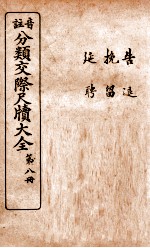 告退
挽留
延聘
音註
分類交際尺牘大全
第八冊